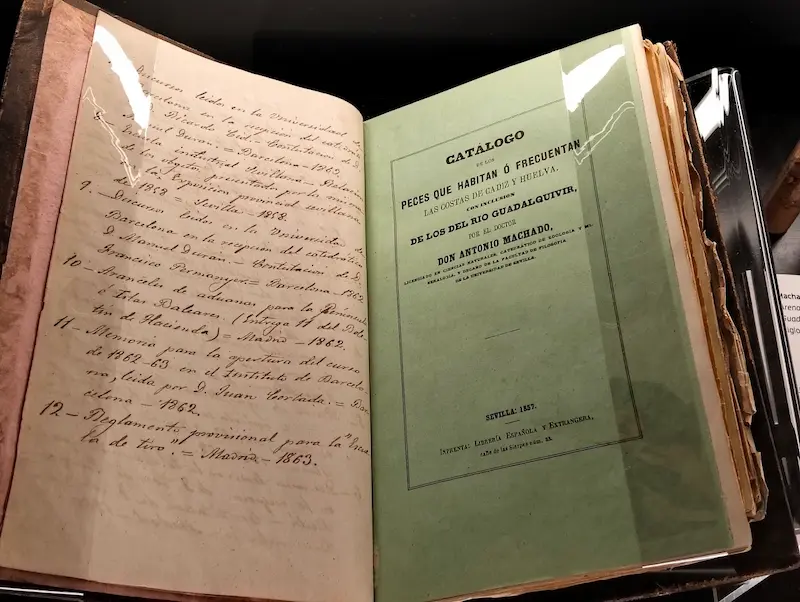 Discurso leido en la Universidad de
Barcelona en la recepcion del catedrático
D. Ricardo Cid = Contestacion de D.
Manuel Duran. = Barcelona - 1862.
Escuela industrial Sevillana - Relacion
de los objetos presentados por la misma
en la Exposicion provincial sevillana
de 1858 = Sevilla - 1858.
9. Discurso leido en la Universidad de
Barcelona en la recepcion del catedrático
D. Manuel Duran. - Contestacion de D.
Francisco Permanyer = Barcelona - 1862.
10 - Aranceles de aduanas para la Península
é Islas Baleares. (Entrega 1ª del Bole-
tin de Hacienda) = Madrid - 1862.
11 - Memoria para la apertura del curso
de 1862-63 en el Instituto de Barcelo-
na, leida por D. Juan Cortada. = Bar-
celona - 1862.
12 - Reglamento provisional para la "Escue-
la de tiro". = Madrid - 1863.
CATÁLOGO
DE LOS
PECES QUE HABITAN Ó FRECUENTAN
LAS COSTAS DE CADIZ Y HUELVA,
CON INCLUSION
DE LOS DEL RIO GUADALQUIVIR,
POR EL DOCTOR
DON ANTONIO MACHADO,
LICENCIADO EN CIENCIAS NATURALES, CATEDRÁTICO DE ZOOLOGIA Y MI-
NERALOGIA, Y DECANO DE LA FACULTAD DE FILOSOFIA
DE LA UNIVERSIDAD DE SEVILLA.
SEVILLA: 1857.
IMPRENTA: LIBRERÍA ESPAÑOLA Y EXTRANGERA,
calle de las Sierpes núm.